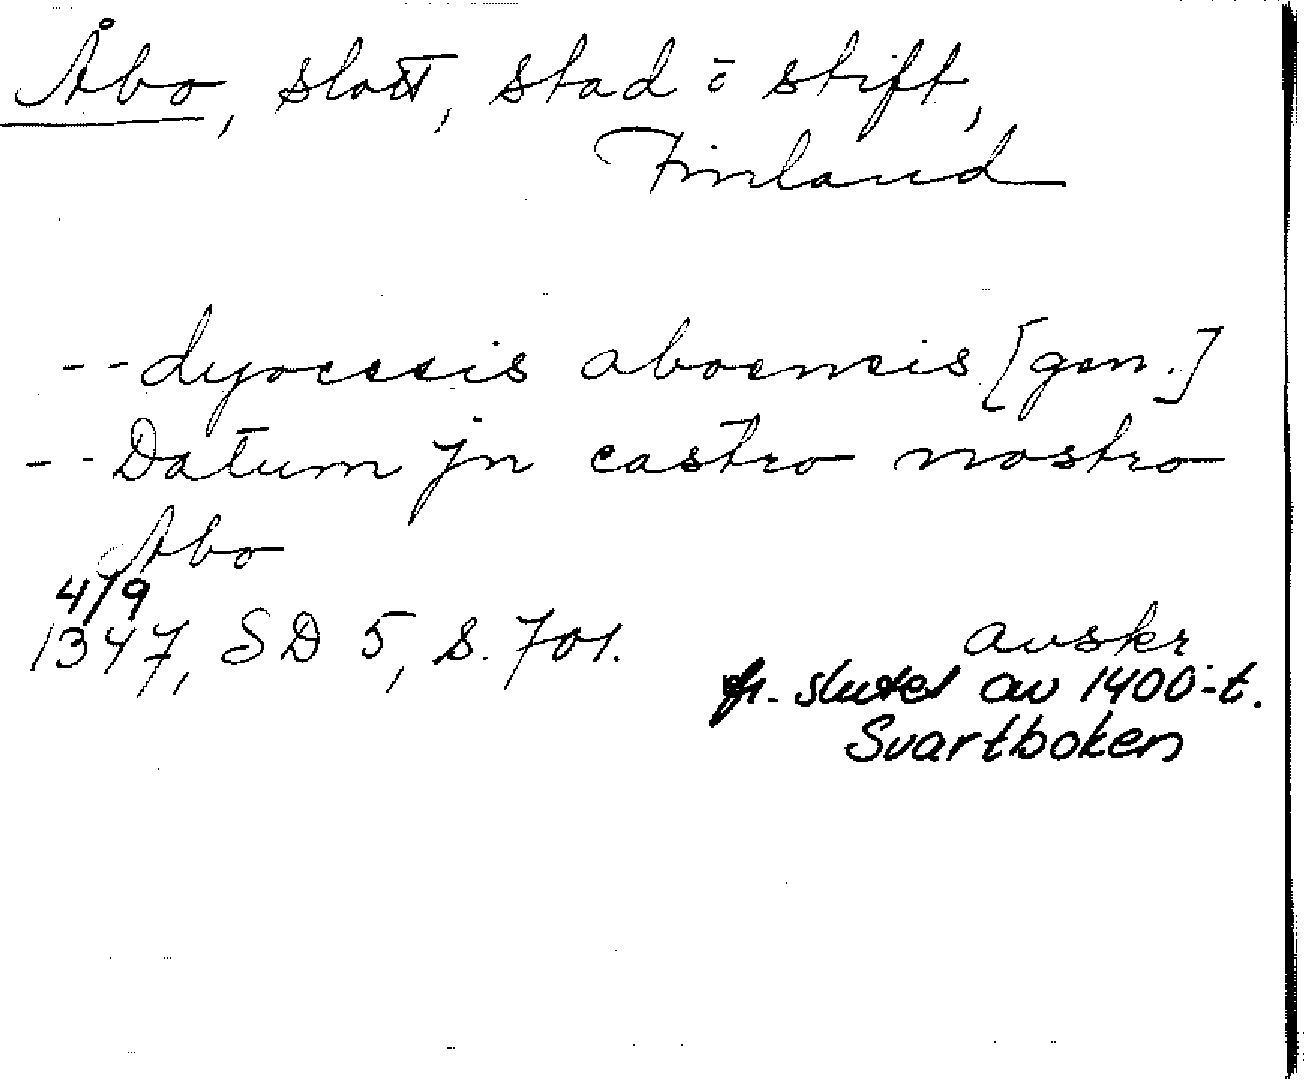 Åbo, slott, stad o stift,
Finland
-- dyocesis aboensis [gen.]
-- Datum jn castro nostro
Abo
4/9
1347, SD 5, s. 701.
avskr
fr. slutet av 1400-t.
Svartboken